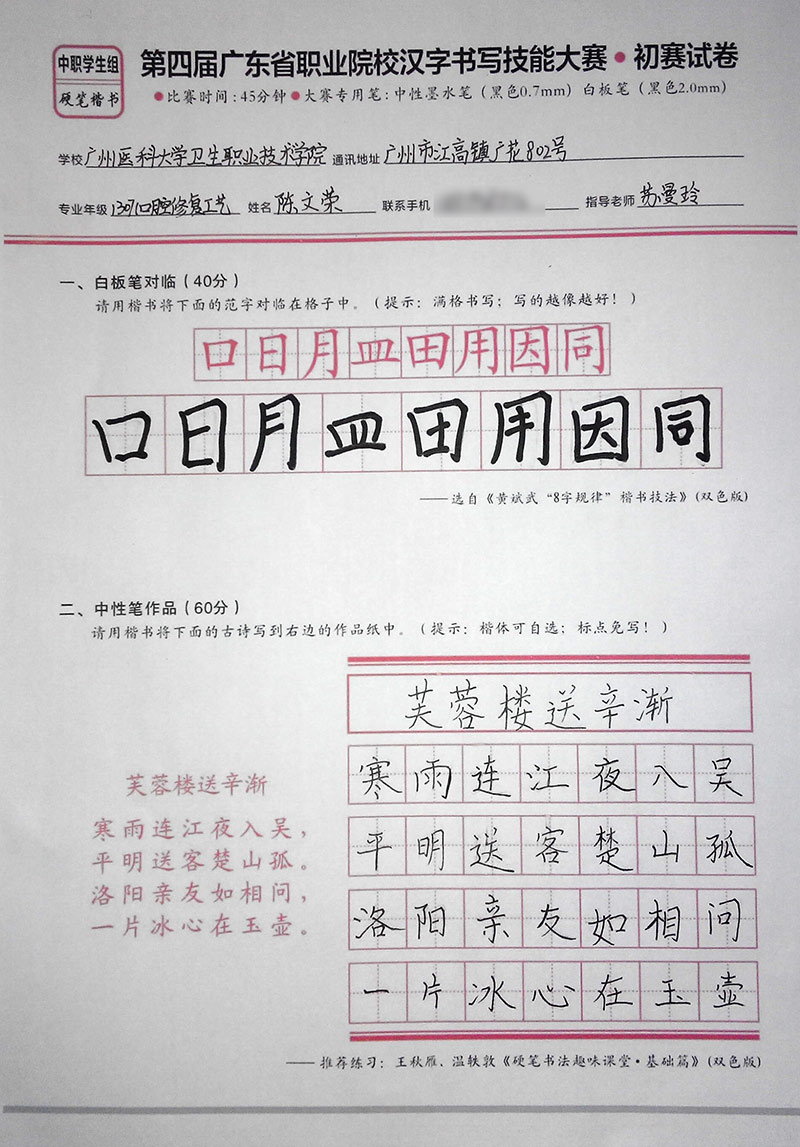 中职学生组
硬笔楷书
第四届广东省职业院校汉字书写技能大赛·初赛试卷
●比赛时间:45分钟●大赛专用笔:中性墨水笔(黑色0.7mm)白板笔(黑色2.0mm)
学校 广州医科大学卫生职业技术学院 通讯地址 广州市江高镇广花802号
专业年级 1307口腔修复工艺 姓名 陈文荣 联系手机 指导老师 苏曼玲
一、白板笔对临(40分)
请用楷书将下面的范字对临在格子中。(提示:满格书写;写的越像越好!)
口日月皿田用因同
口日月皿田用因同
——选自《黄斌武“8字规律”楷书技法》(双色版)
二、中性笔作品(60分)
请用楷书将下面的古诗写到右边的作品纸中。(提示:楷体可自选;标点免写!)
芙蓉楼送辛渐
寒雨连江夜入吴,
平明送客楚山孤。
洛阳亲友如相问,
一片冰心在玉壶。
芙蓉楼送辛渐
寒雨连江夜入吴
平明送客楚山孤
洛阳亲友如相问
一片冰心在玉壶
——推荐练习:王秋雁、温轶敦《硬笔书法趣味课堂·基础篇》(双色版)